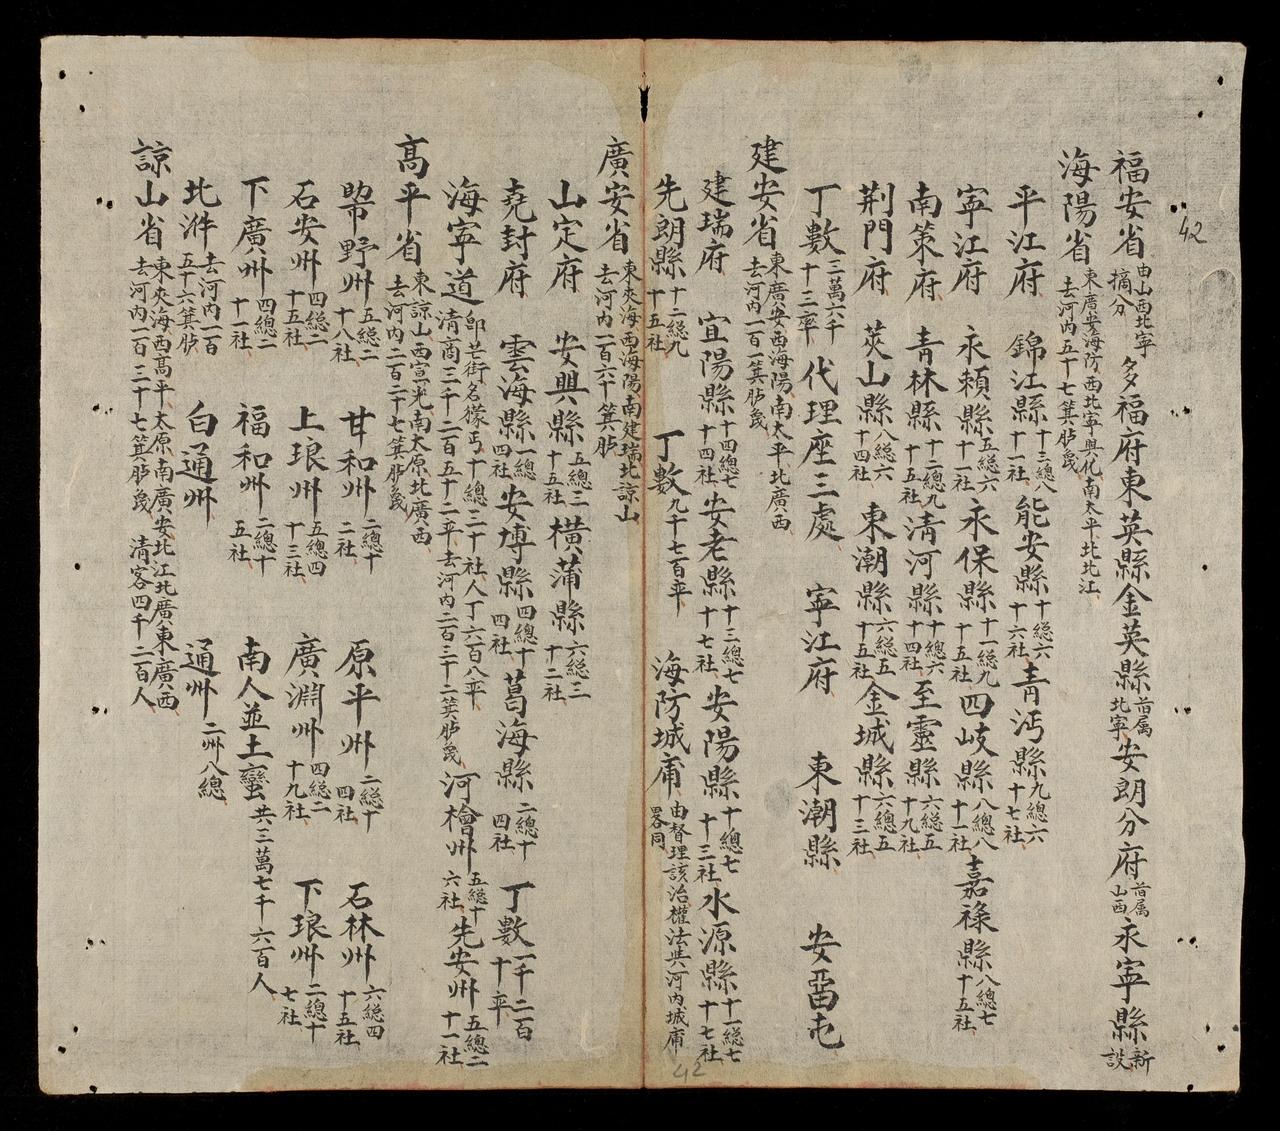 42
福安省由山西北寧摘分多福府東英縣金英縣首属北寧安朗分府首属山西永寧縣新設
海陽省東廣安海防西北寧興化南太平北北江去河内五十七箕𡗉幾
平江府 錦江縣十三總八十一社能安縣十總六十六社青沔縣九總六十七社
寧江府 永賴縣五總六十一社永保縣十一總九十五社四岐縣八總八十一社嘉祿縣八總七十五社
南策府 青林縣十二總九十五社清河縣十總六十四社至靈縣六總五十九社
荆門府 莢山縣八總六十四社東潮縣六總五十五社金城縣六總五十三社
丁數三萬六千十三率代理座三處 寧江府 東潮縣 安畱屯
建安省東廣安西海陽南太平北廣西去河内一百一箕幾
建瑞府 宜陽縣十四總七十四社安老縣十三總七十七社安陽縣十總七十三社水源縣十一總七十七社
先朗縣十二總九十五社 丁數九千七百率 海防城庯由督理該治權法共河内城庯畧同
廣安省東夾海西海陽南建瑞北諒山去河内一百六十箕
山定府 安興縣五總三十五社橫蒲縣六總三十二社
堯封府 雲海縣一總四社安博縣四總十四社葛海縣二總十四社丁數一千二百十率
海寧道卽芒街名獴丐十總三十社人丁六百八率清商三千二百五十二率去河内二百三十二箕幾河檜州五總十六社先安州五總二十一社
高平省東諒山西宣光南太原北廣西去河内二百二十七箕幾
野州五總二十八社 甘和州二總十二社 原平州二總十四社 石林州六總四十五社
石安州四總二十五社 上琅州五總四十三社 廣淵州四總二十九社 下琅州二總十七社
下廣州四總二十一社 福和州二總十五社 南人並土蠻共三萬七千六百人
北泮去河内一百五十六箕 白通州 通州二州八總
諒山省東夾海西高平太原南廣安北江北廣東廣西去河内一百三十七箕幾清客四千二百人
42